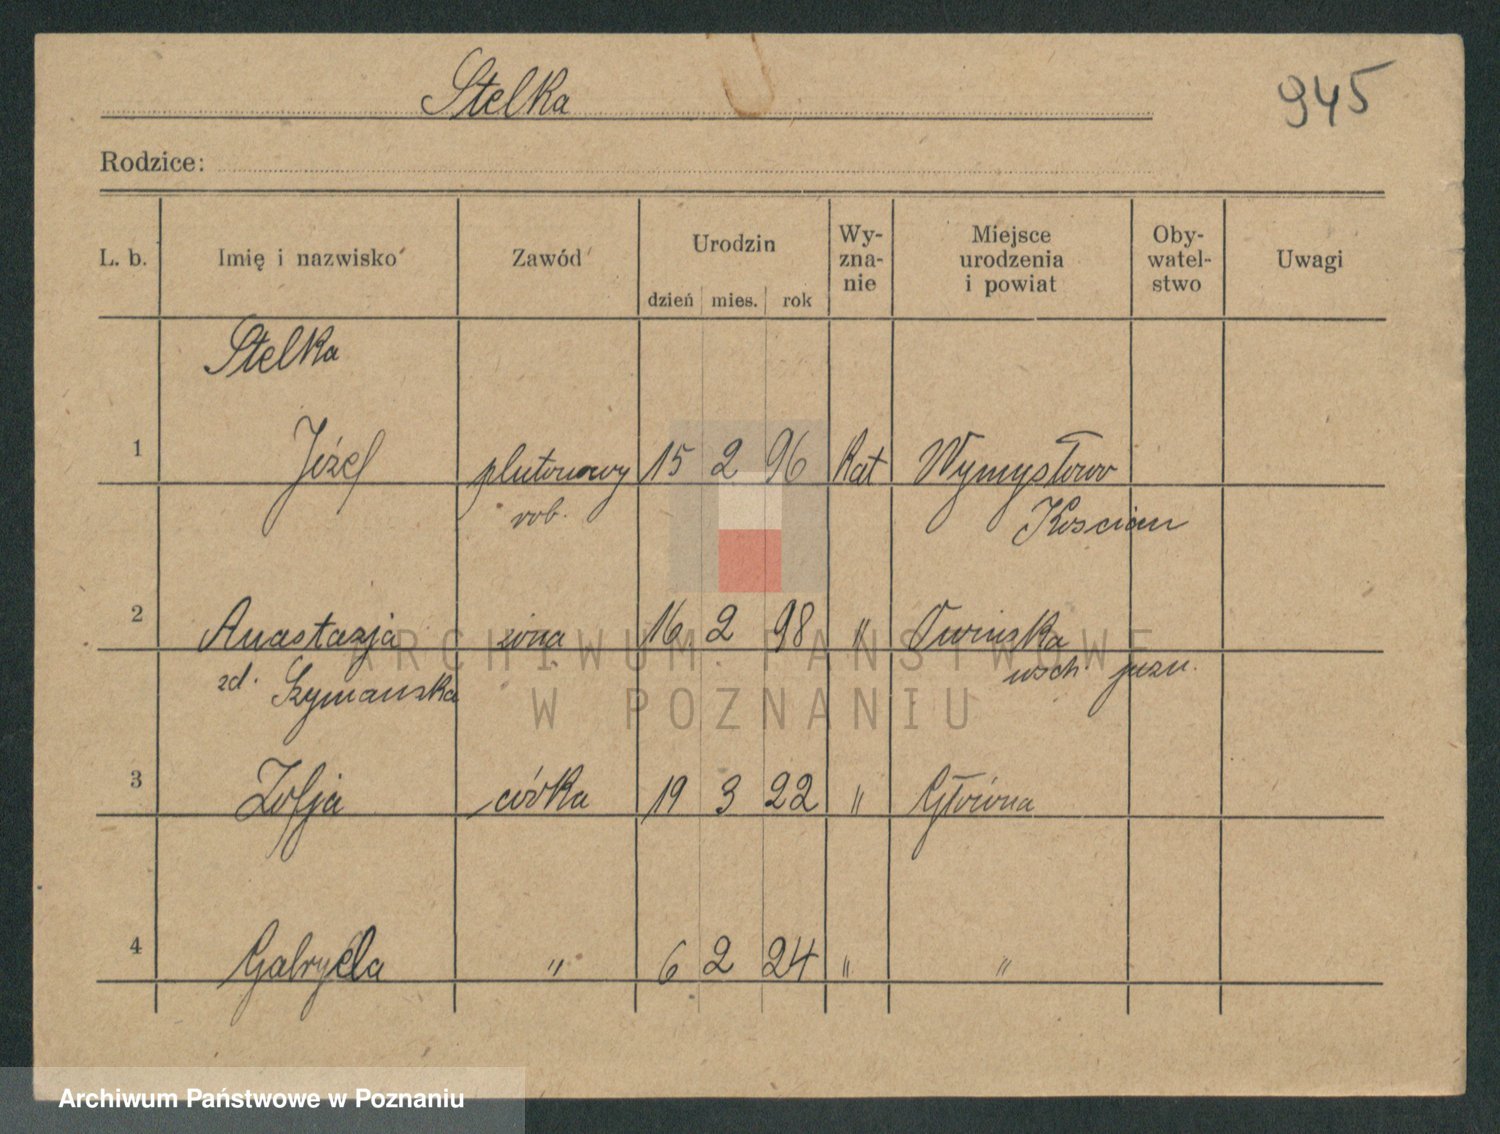 Stelka
945
Rodzice:
L. b. Imię i nazwisko Zawód Urodzin dzień mies. rok Wy-zna-nie Miejsce urodzenia i powiat Oby-watel-stwo Uwagi
Stelka
1 Józef plutonowy 15 2 96 Kat Wymysłowo
rob. Kościan
2 Anastazja żona 16 2 98 " Owińska
zd. Szymańska wsch. pozn.
3 Zofja córka 19 3 22 " Główna
4 Gabryela " 6 2 24 " "
ARCHIWUM PAŃSTWOWE
W POZNANIU
Archiwum Państwowe w Poznaniu